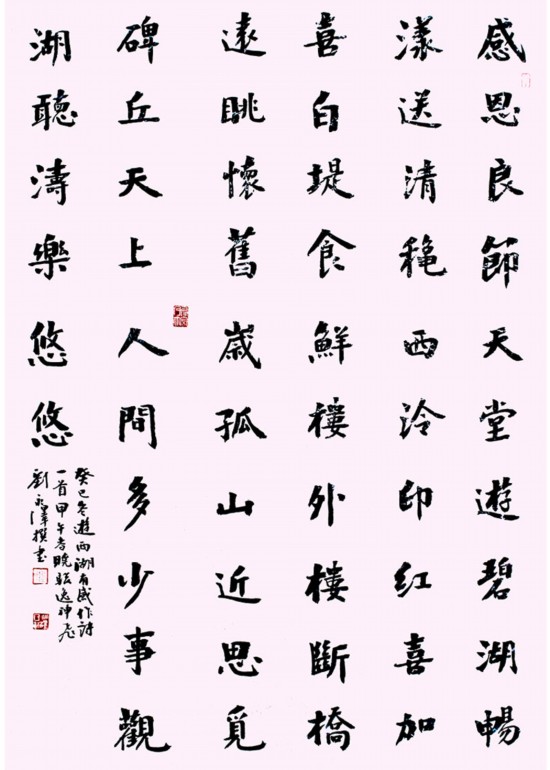 感恩良節天堂遊碧湖暢
漾送清穐西泠印紅喜加
喜白堤食鮮樓外樓斷橋
遠眺懷舊歲孤山近思覓
碑丘天上人間多少事觀
湖聽濤樂悠悠
癸巳冬遊西湖有感作詩
一首甲午春晚逸神飛
劉永澤撰書